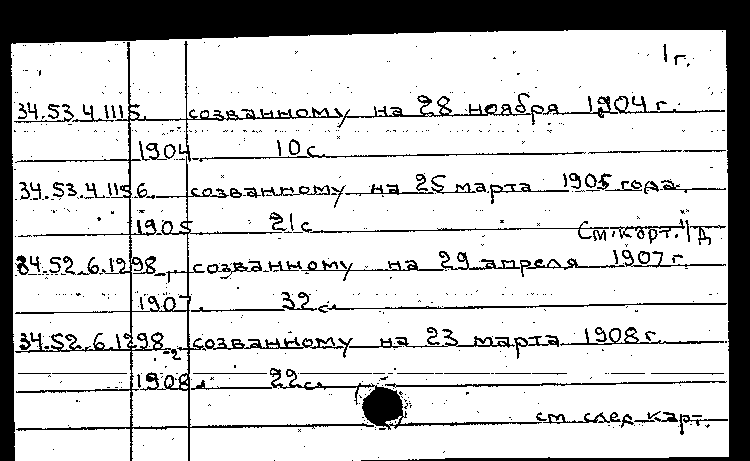 1г.
34.53.4.1115. созванному на 28 ноября 1904 г.
1904. 10 с.
34.53.4.1156. созванному на 25 марта 1905 года.
1905 21 с
См. карт. 1д
34.52.6.1298-1 созванному на 29 апреля 1907 г.
1907. 32 с.
34.52.6.1298-2 созванному на 23 марта 1908 г.
1908. 22 с.
см след карт.